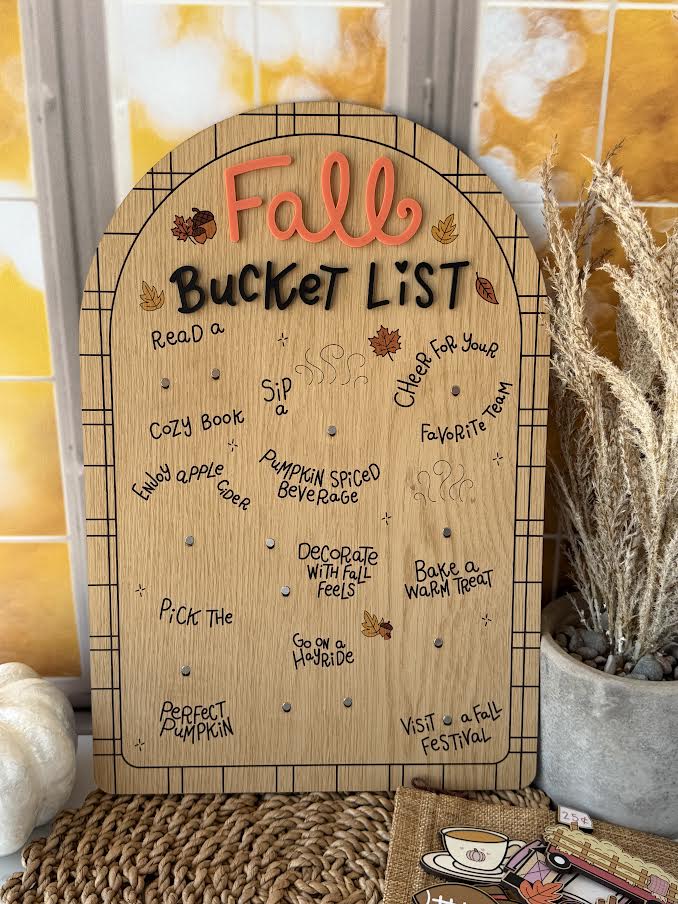 Fall
BUCKET LIST
READ A
COZY BOOK
SIP
a
PUMPKIN SPICED
BEVERAGE
CHEER FOR YOUR
FAVORITE TEAM
ENJOY APPLE
CIDER
DECORATE
WITH FALL
FEELS
BAKE a
WARM TREAT
PICK THE
PERFECT
PUMPKIN
GO ON a
HAYRIDE
VISIT a FALL
FESTIVAL
25¢